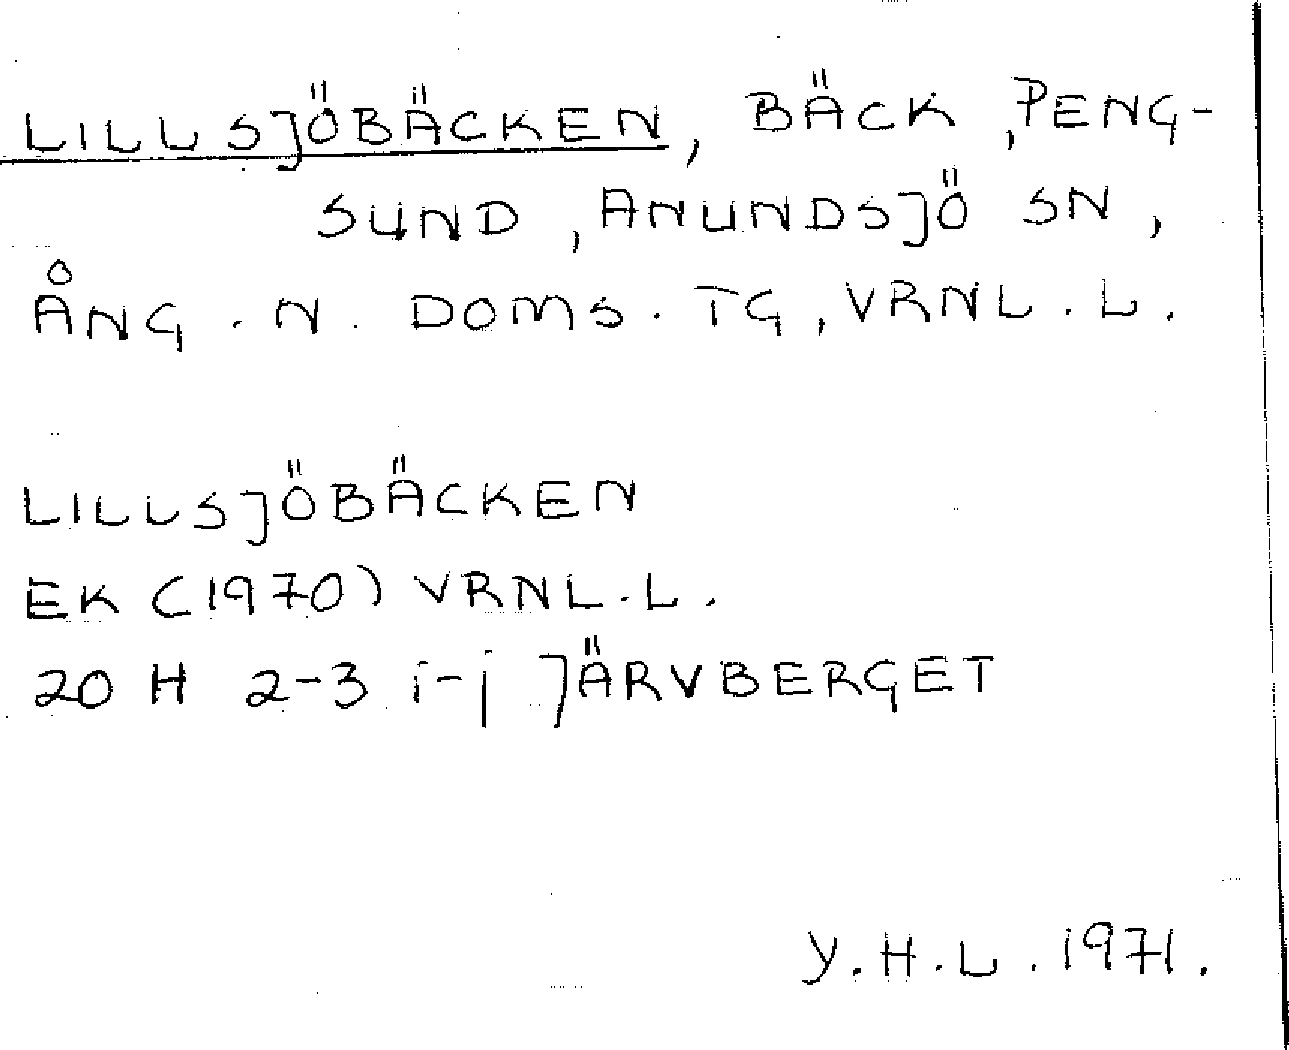 LILLSJÖBÄCKEN, BÄCK, PENG-
SUND, ANUNDSJÖ SN,
ÅNG. N. DOMS. TG, VRNL. L.
LILLSJÖBÄCKEN
EK (1970) VRNL. L.
20 H 2-3 i-j JÄRVBERGET
Y. H. L. 1971.